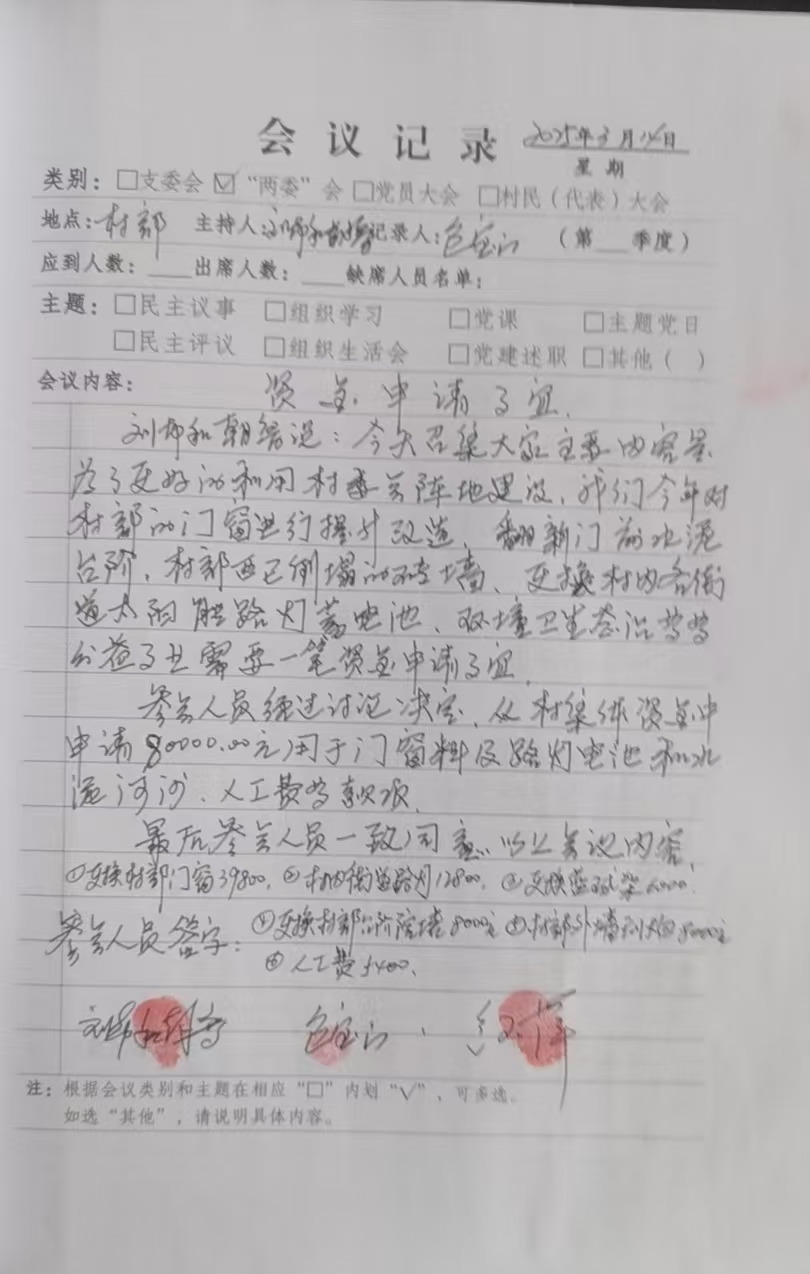 会议记录 2025年3月14日
星期
类别：□支委会 ☑“两委”会 □党员大会 □村民（代表）大会
地点：村部 主持人： 记录人：包宝山 （第 季度）
应到人数： 出席人数： 缺席人员名单：
主题：□民主议事 □组织学习 □党课 □主题党日
□民主评议 □组织生活会 □党建述职 □其他（ ）
会议内容： 资金申请事宜.
说：今天召集大家主要内容是
为了更好的利用村委会阵地建设，我们今年对
村部的门窗进行提升改造、翻新门前水泥
台阶、村部西已倒塌的砖墙、更换村内各街
道太阳能路灯蓄电池、环境卫生整治等等
公益事业需要一笔资金申请事宜.
参会人员经过讨论决定、从村集体资金中
申请80000.00元用于门窗料及路灯电池和水
泥河沙、人工费等款项.
最后参会人员一致同意以上会议内容.
①更换村部门窗39800, ②村内街道路灯12800, ③更换篮球架6000.
参会人员签字：④更换村部台阶院墙8000元 ⑤村部外墙8000元
⑥人工费5400.
包宝山
注：根据会议类别和主题在相应“□”内划“√”，可多选。
如选“其他”，请说明具体内容。